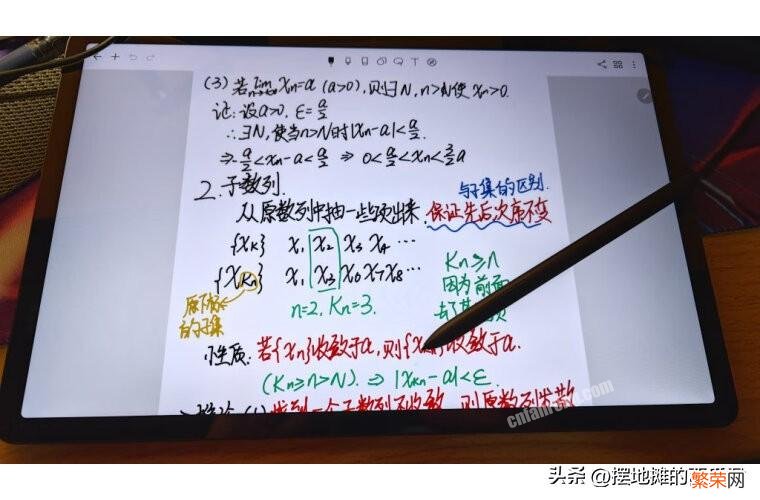 (3) 若 lim xn=a (a>0), 则∃N, n>N使 xn>0.
n→∞
证: 设a>0, ε=a/2
∴∃N, 使当n>N时|xn-a|<a/2.
⇒ -a/2<xn-a<a/2 ⇒ 0<a/2<xn<3/2a
2. 子数列.
与子集的区别.
从原数列中抽一些项出来. 保证先后次序不变
{xK} x1 x2 x3 x4 …
{xKn} x1 x3 x6 x7 x8 …
n=2, Kn=3.
Kn≥n
因为前面
原下标
的子集
小性质: 若{xn}收敛于a, 则{x 收敛于a.
(Kn≥n>N). ⇒ |xKn-a|<ε.
(1) 找到一个子数列不收敛, 则原数列发散
cnfanrong.com
头条 @摆地摊的
繁荣网